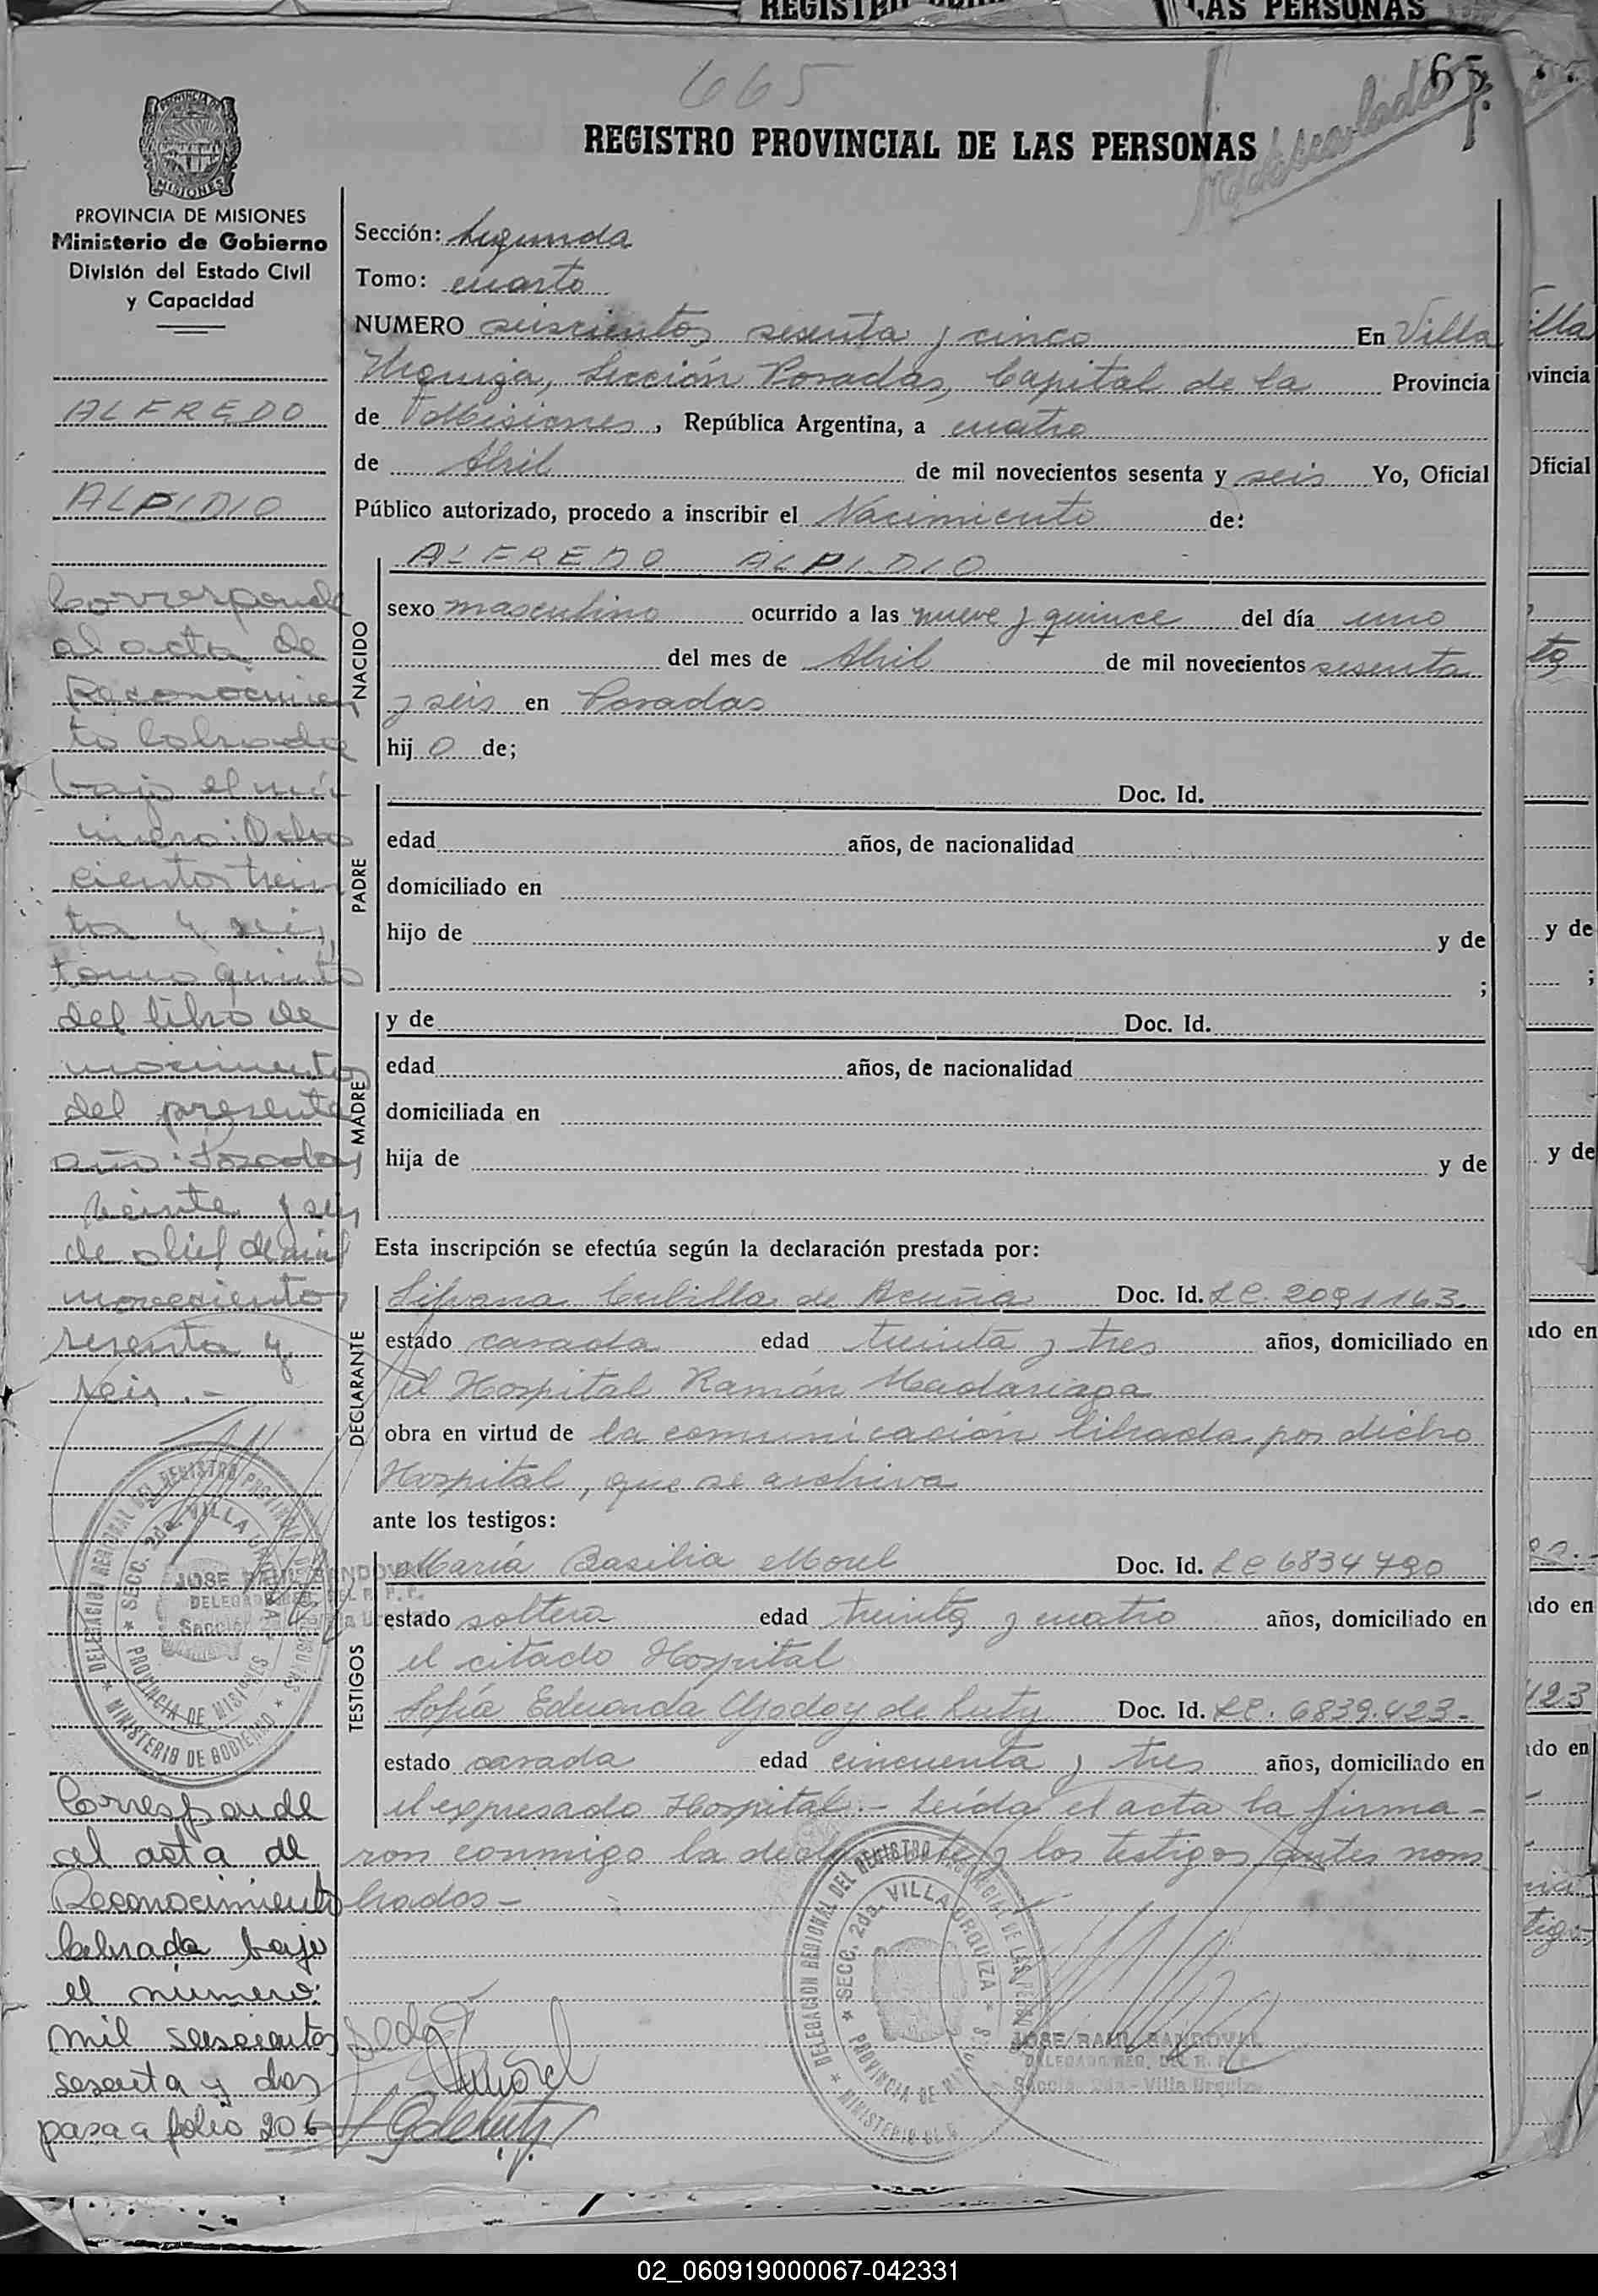 665
65
REGISTRO PROVINCIAL DE LAS PERSONAS
PROVINCIA DE MISIONES
Ministerio de Gobierno
División del Estado Civil
y Capacidad
ALFREDO
ALPIDIO
Corresponde
al acta de
Reconocimien
to labrada
bajo el nú
mero: Ocho
cientos trein
ta y seis,
tomo quinto
del libro de
nacimientos
del presente
año. Posadas
veinte y seis
de abril de mil
novecientos
sesenta y
seis.-
DELEGACION REGIONAL DEL REGISTRO PROVINCIAL DE LAS PERSONAS
SECC. 2da. VILLA URQUIZA
PROVINCIA DE MISIONES
MINISTERIO DE GOBIERNO
JOSE RAUL SANDOVAL
Corresponde
al acta de
Reconocimiento
labrada bajo
el número:
mil seiscientos
sesenta y dos
pasa a folio 206
Sección: Segunda
Tomo: cuarto
NUMERO seiscientos sesenta y cinco En Villa
Urquiza, Sección Posadas, Capital de la Provincia
de Misiones, República Argentina, a cuatro
de Abril de mil novecientos sesenta y seis Yo, Oficial
Público autorizado, procedo a inscribir el Nacimiento de:
NACIDO
ALFREDO ALPIDIO
sexo masculino ocurrido a las nueve y quince del día uno
del mes de Abril de mil novecientos sesenta
y seis en Posadas
hij o de;
PADRE
Doc. Id.
edad años, de nacionalidad
domiciliado en
hijo de y de
;
MADRE
y de Doc. Id.
edad años, de nacionalidad
domiciliada en
hija de y de
Esta inscripción se efectúa según la declaración prestada por:
DECLARANTE
Silvana Cubilla de Acuña Doc. Id. LC. 2091163
estado casada edad treinta y tres años, domiciliado en
el Hospital Ramón Madariaga
obra en virtud de la comunicación librada por dicho
Hospital, que se archiva
ante los testigos:
TESTIGOS
María Basilia Morel Doc. Id. LC 6834790
estado soltera edad treinta y cuatro años, domiciliado en
el citado Hospital
Sofía Eduarda Godoy de Luty Doc. Id. LC. 6839.423-
estado casada edad cincuenta y tres años, domiciliado en
el expresado Hospital.- Leída el acta la firma-
ron conmigo la declarante y los testigos antes nom-
brados-
DELEGACION REGIONAL DEL REGISTRO PROVINCIAL DE LAS PERSONAS
SECC. 2da. VILLA URQUIZA
PROVINCIA DE
MINISTERIO DE G.
JOSE RAUL SANDOVAL
DELEGADO REG. DEL R. P. P.
Sección 2da - Villa Urquiza
02_060919000067-042331